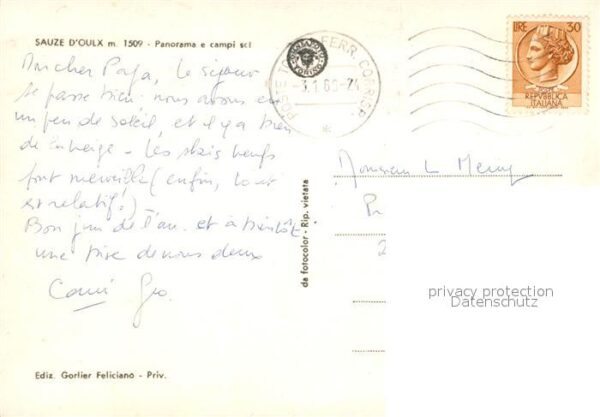 SAUZE D'OULX m. 1509 - Panorama e campi sci
Mon cher Papa, le séjour
se passe bien; nous avons eu
un peu de soleil, et il y a bien
de la neige - Les skis neufs
font merveille (enfin, tout
est relatif!)
Bon jour de l'an et à bientôt
une bise de nous deux
Ediz. Gorlier Feliciano - Priv.
da fotocolor - Rip. vietata
FERR. CORRISP
LIRE 30
REPVBBLICA
ITALIANA
Monsieur L
privacy protection
Datenschutz